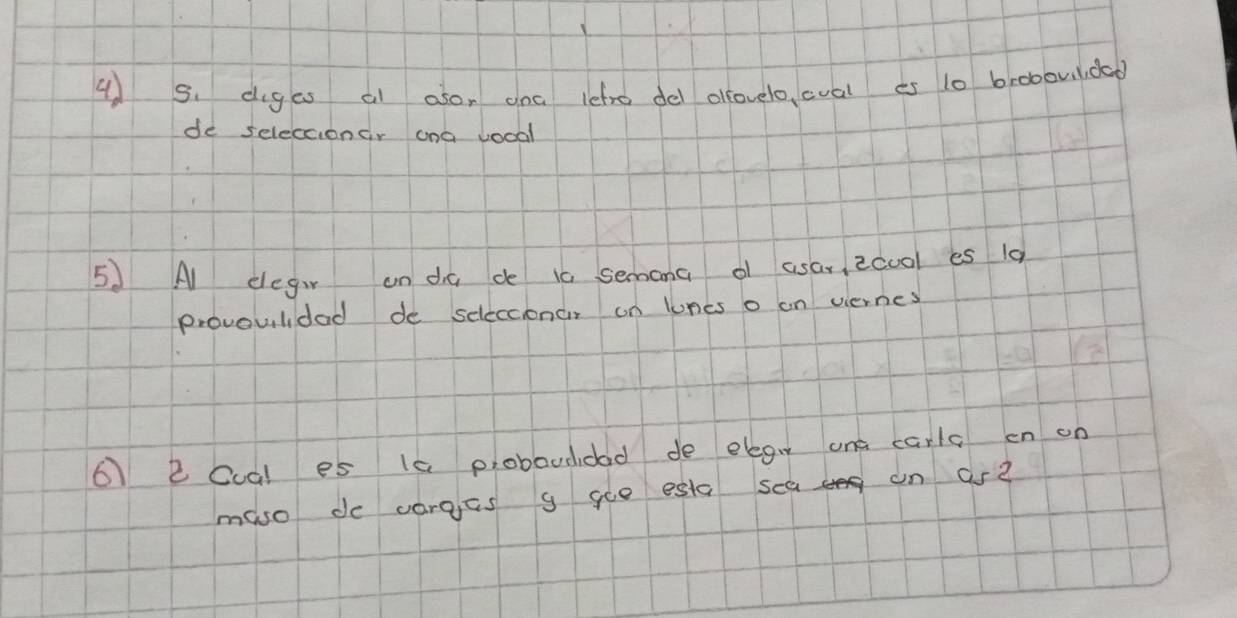 4) Si diges al asar una letra del alfavelo, cual es la probavilidad
de seleccionar una vocal
5) Al elegir un dia de la semana al asar, ¿cual es la
provovilidad de seleccionar un lunes o un viernes
6) ¿ Cual es la probavilidad de elegir una carta en un
maso de varajas y que esta sea un as?